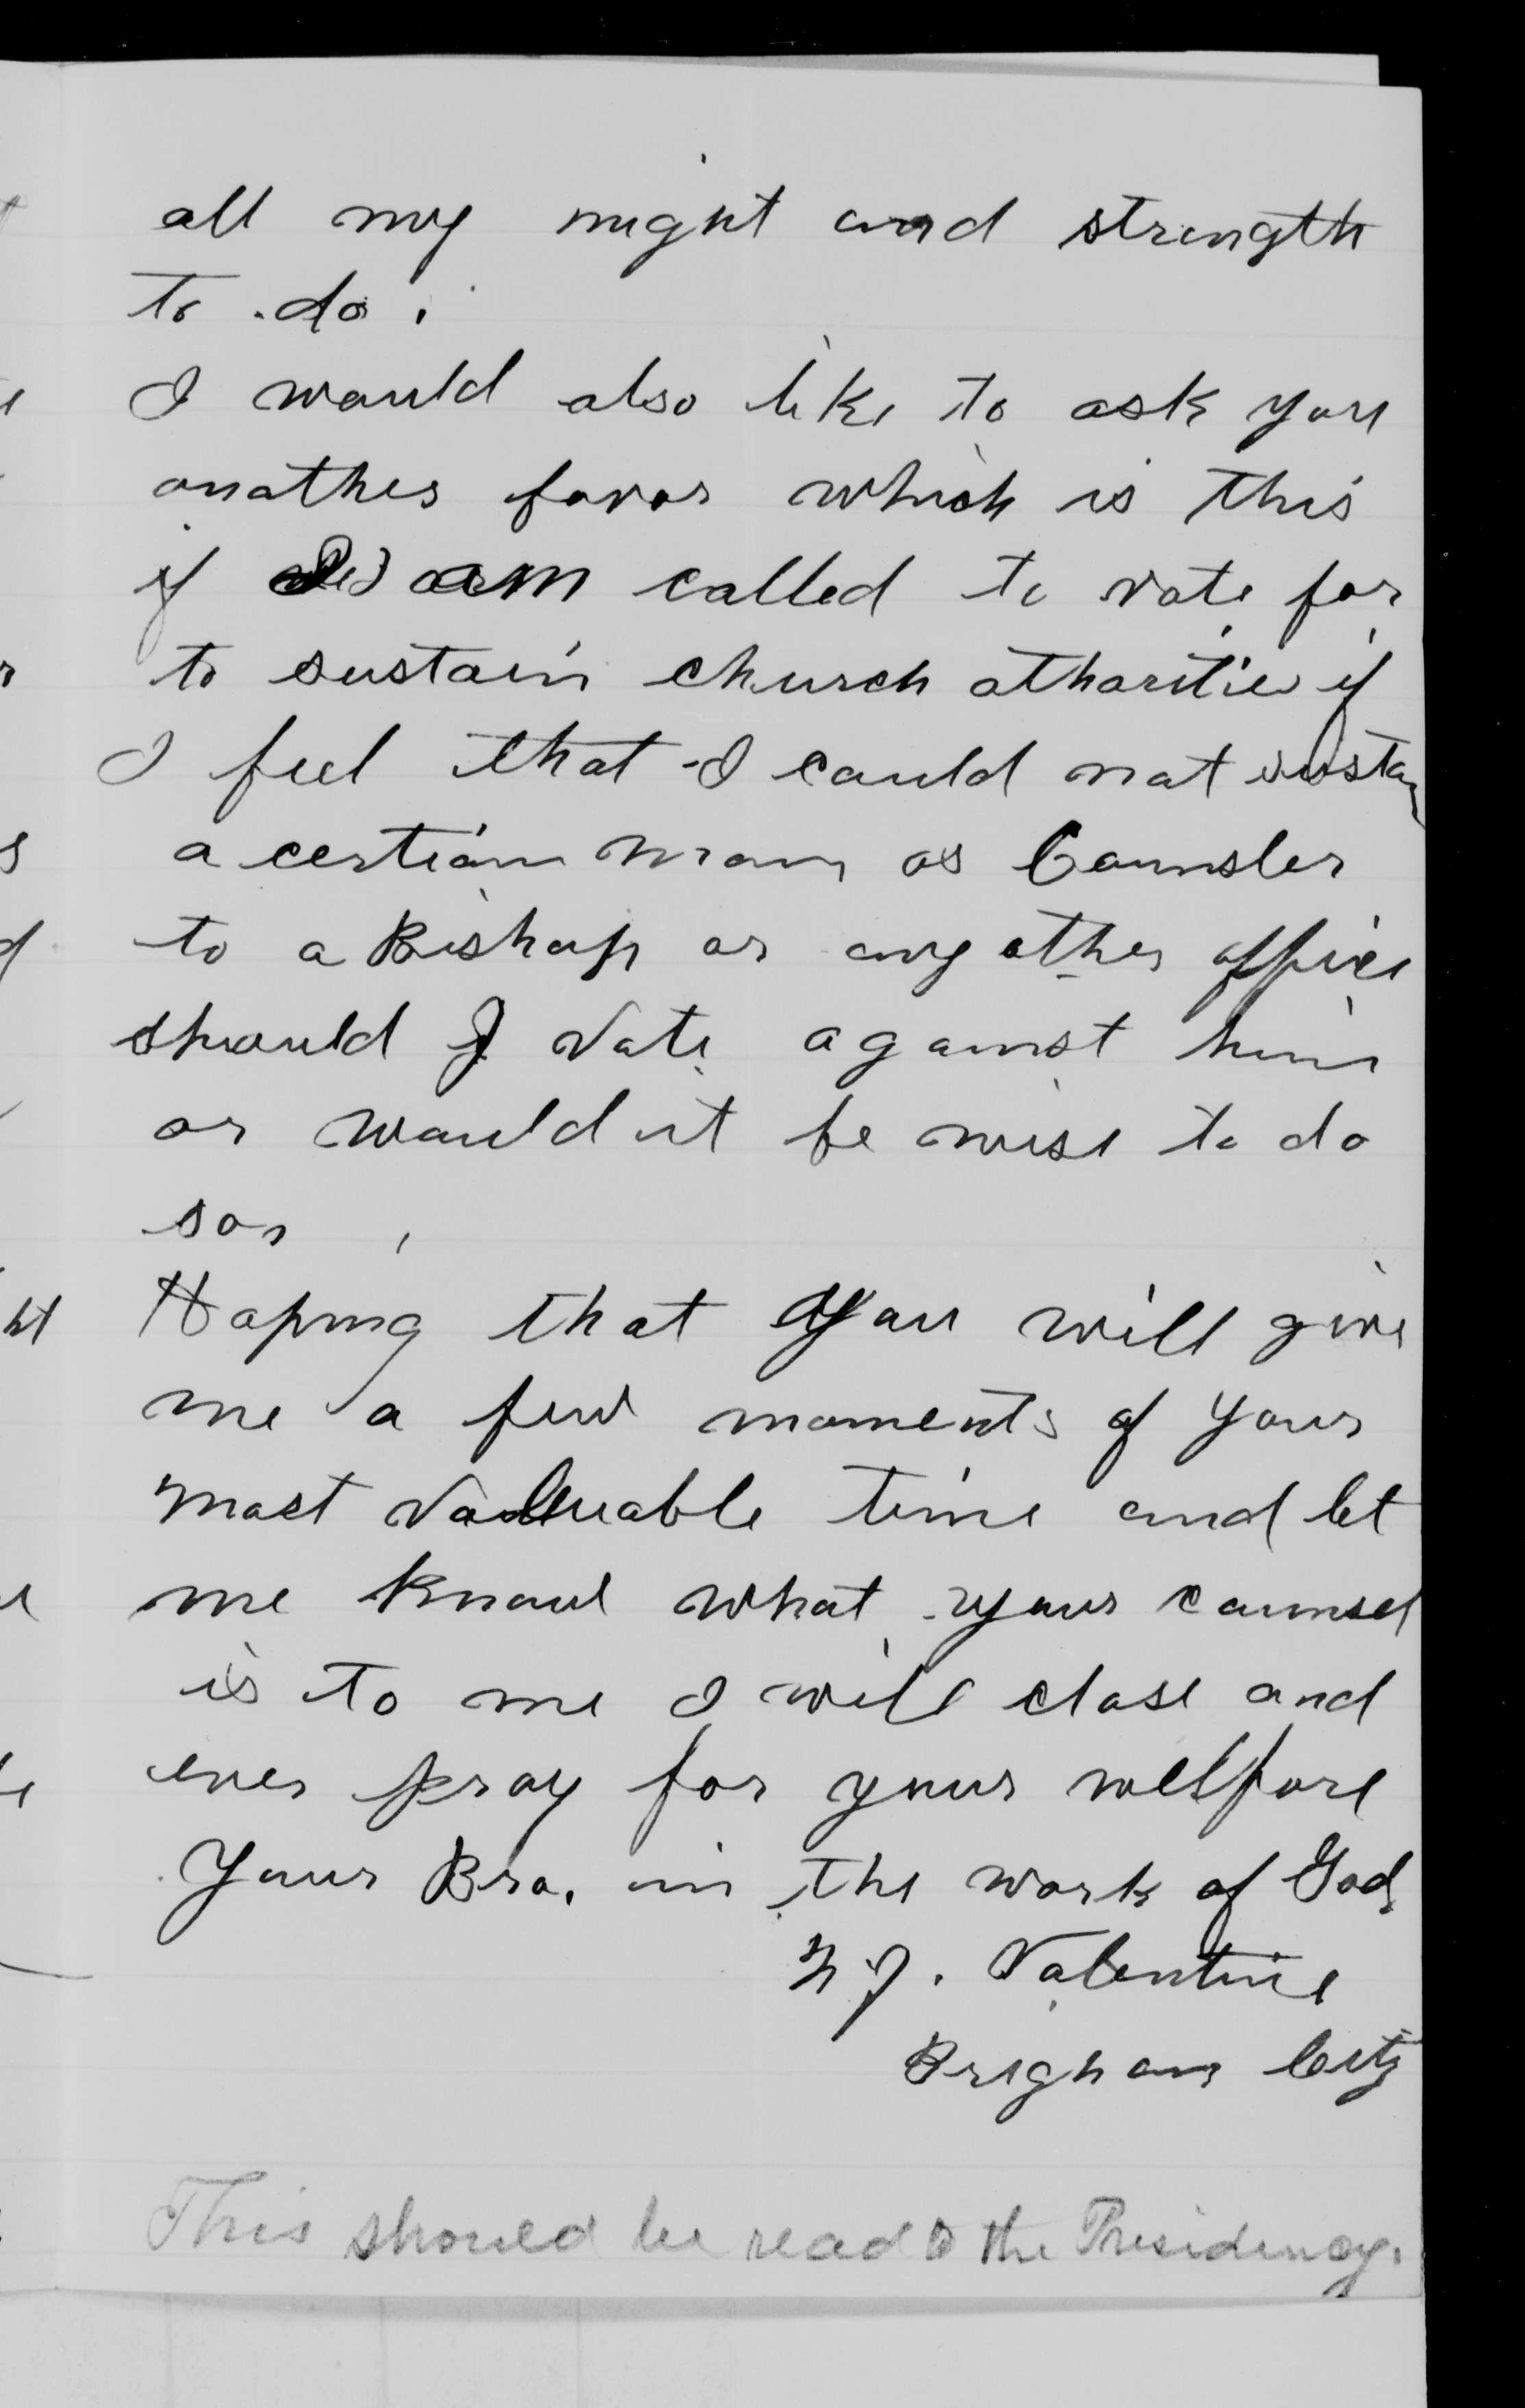 all my might and strength
to do.
I would also like to ask you
another favor which is this
if I am called to vote for
to sustain church athorities if
I feel that I could not sustain
a certian man as Counsler
to a Bishop or any other office
should I vote against him
or would it be wise to do
so,
Hoping that you will give
me a few moments of your
most valuable time and let
me know what your counsel
is to me I will close and
ever pray for your welfare
Your Bro. in the work of God
Valentine
Brigham City
This should be read to the Presidency.